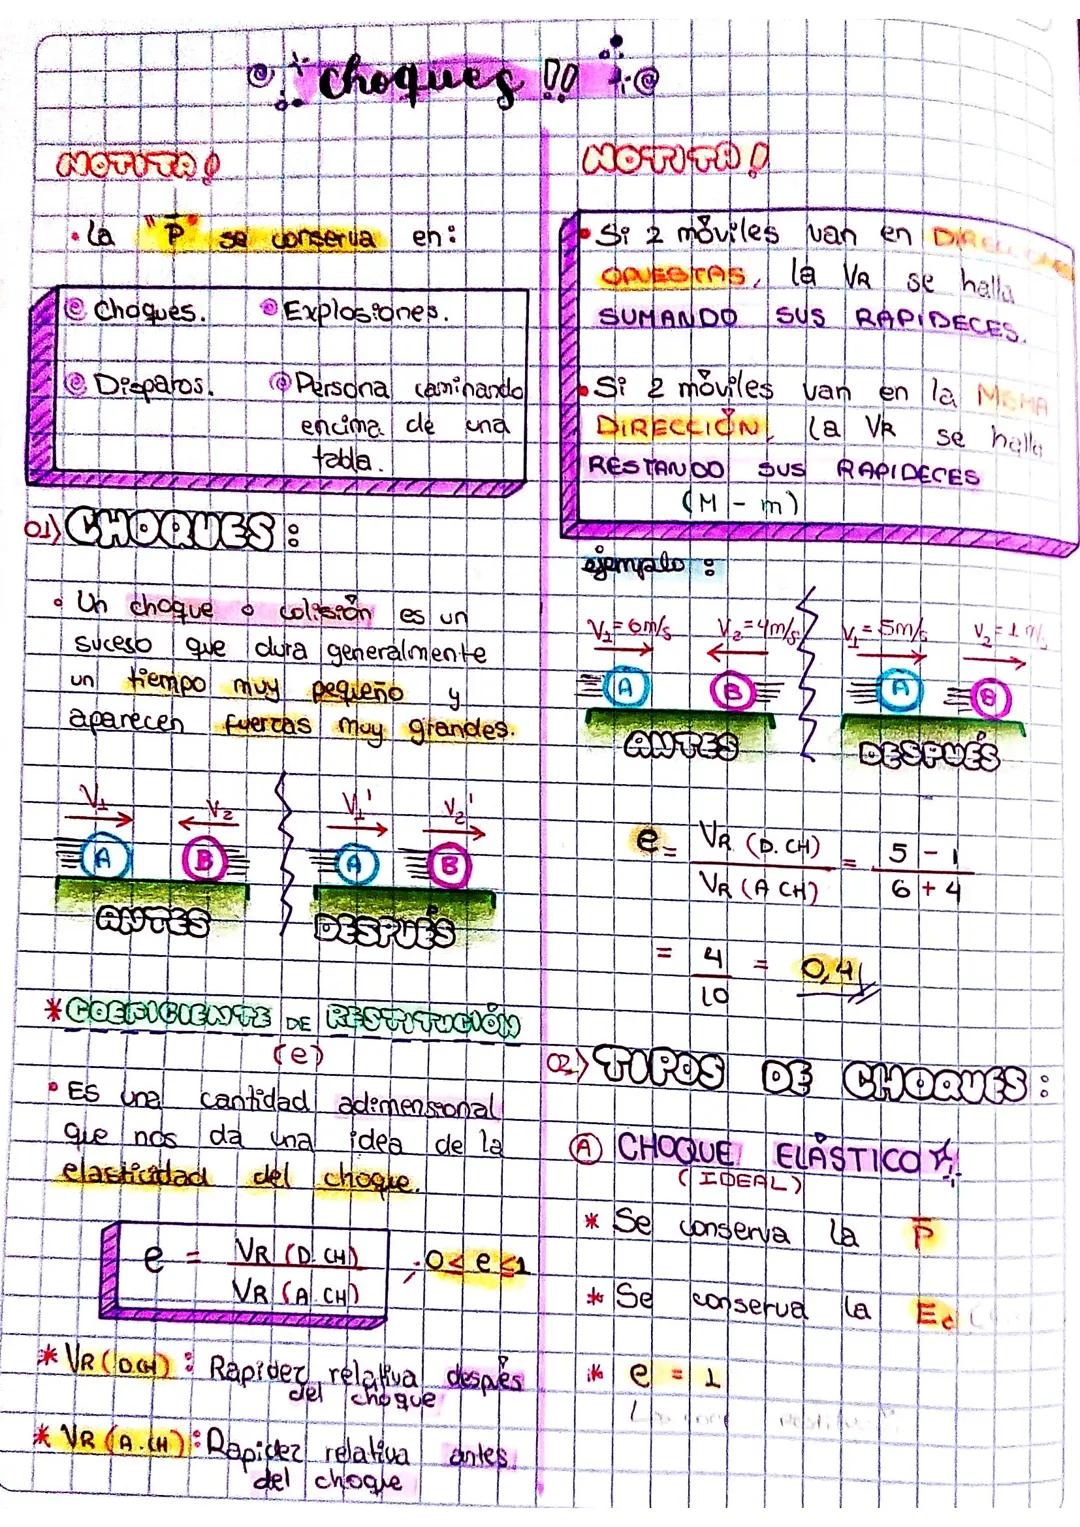 choques !!
NOTITA!
• La "P̄" se conserva en:
@ Choques.
@ Explosiones.
@ Disparos.
@ Persona caminando
encima de una
tabla.
01) CHOQUES:
• Un choque o colisión es un
suceso que dura generalmente
un tiempo muy pequeño y
aparecen fuerzas muy grandes.
V₁
V₂
V₁'
V₂'
A
B
A
B
ANTES
DESPUÉS
* COEFICIENTE DE RESTITUCIÓN
(e)
• ES una cantidad adimensional
que nos da una idea de la
elasticidad del choque.
e = VR (D. CH) / VR (A. CH) ; 0 ≤ e ≤ 1
* VR (D.CH) : Rapidez relativa después
del choque
* VR (A.CH) : Rapidez relativa antes
del choque
NOTITA!
• Si 2 móviles van en DIRECCIONES
OPUESTAS, la VR se halla
SUMANDO SUS RAPIDECES.
• Si 2 móviles van en la MISMA
DIRECCIÓN, la VR se halla
RESTANDO SUS RAPIDECES
(M - m)
ejemplo :
V₁ = 6m/s
V₂ = 4m/s
V₁ = 5m/s
V₂ = 1 m/s
A
B
A
B
ANTES
DESPUÉS
e = VR (D. CH) / VR (A CH) = 5 - 1 / 6 + 4
= 4 / 10 = 0,4
02) TIPOS DE CHOQUES:
(A) CHOQUE ELÁSTICO
(IDEAL)
* Se conserva la P̄
* Se conserva la Ec
* e = 1